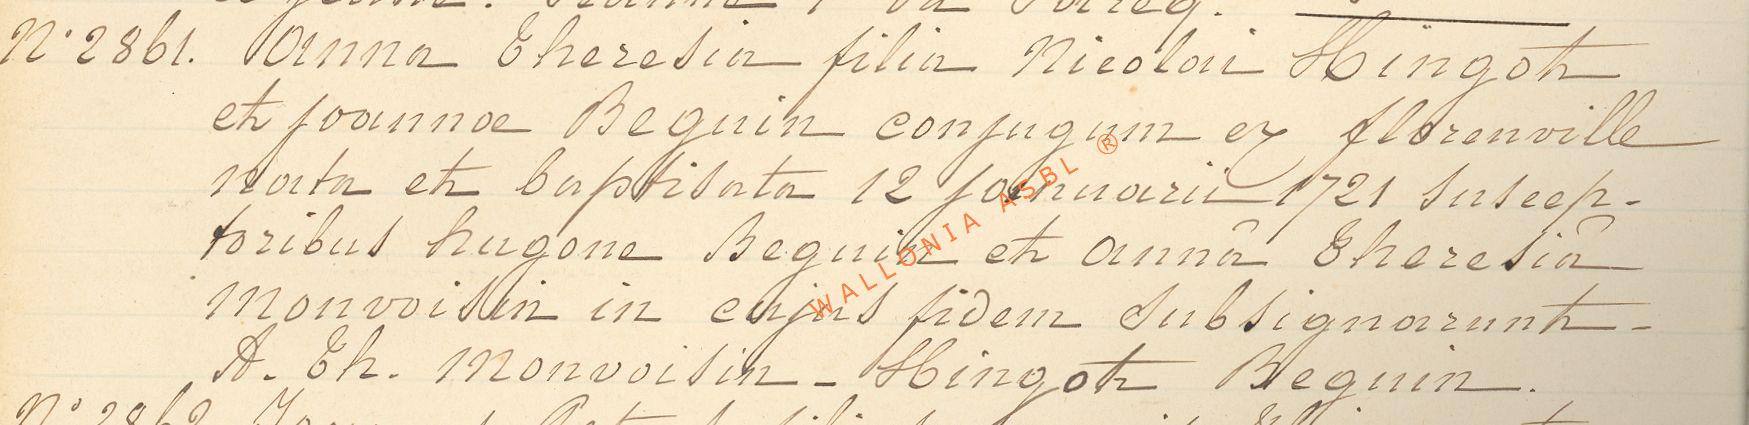 N° 2861. Anna Theresia filia Nicolai Hingot
et joannae Beguin conjugum ex florenville
nata et baptisata 12 januarii 1721 suscep-
toribus hugone Beguin et annâ Theresiâ
monvoisin in cujus fidem subsignarunt -
A. Th. monvoisin - Hingot Beguin.
N° 2862
WALLONIA ASBL ®